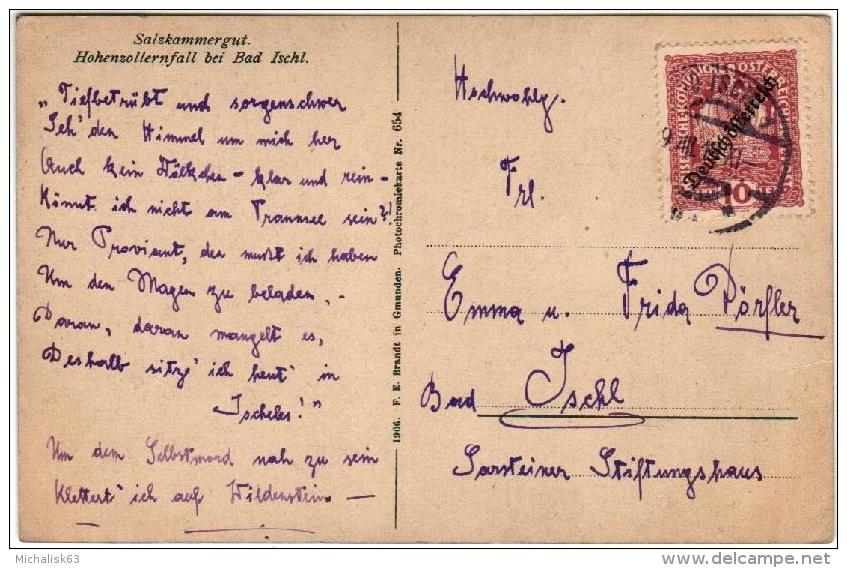 Salzkammergut.
Hohenzollernfall bei Bad Ischl.
„Tiefbetrübt und sorgenschwer
Seh' den Himmel um mich her
Auch kein Wölkchen – klar und rein –
Könnt ich nicht am Traunsee sein?!
Nur Proviant, den mußt ich haben
Um den Magen zu beladen, –
Daran, daran mangelt es,
Deshalb sitz' ich heut' in
Ischeles!"
Um dem Selbstmord nah zu sein
Klettert' ich auf Wildenstein —
1906. F. E. Brandt in Gmunden. Photochromiekarte Nr. 654
Hochwohlg.
Frl.
Emma u. Frida Dörfler
Bad Ischl
Sarsteiner Stiftungshaus
Deutschösterreich
10
Michalisk63
delcampe.net